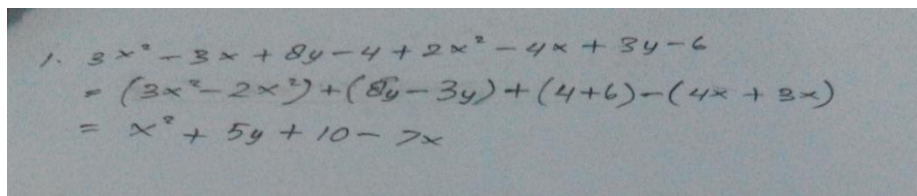 1. 3x² - 3x + 8y - 4 + 2x² - 4x + 3y - 6
= (3x² - 2x²) + (8y - 3y) + (4+6) - (4x + 3x)
= x² + 5y + 10 - 7x